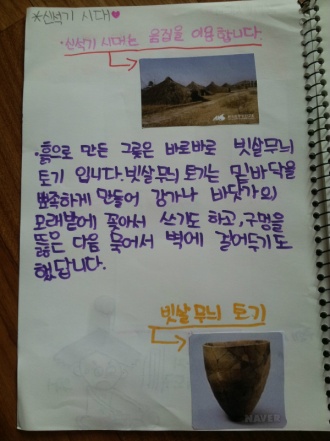 *신석기 시대♥
·신석기 시대는 움집을 이용합니다.
·흙으로 만든 그릇은 바로바로 빗살무늬
토기 입니다. 빗살무늬 토기는 밑바닥을
뾰족하게 만들어 강가나 바닷가의
모래밭에 꽂아서 쓰기도 하고, 구멍을
뚫은 다음 묶어서 벽에 걸어두기도
했답니다.
빗살무늬 토기
NAVER